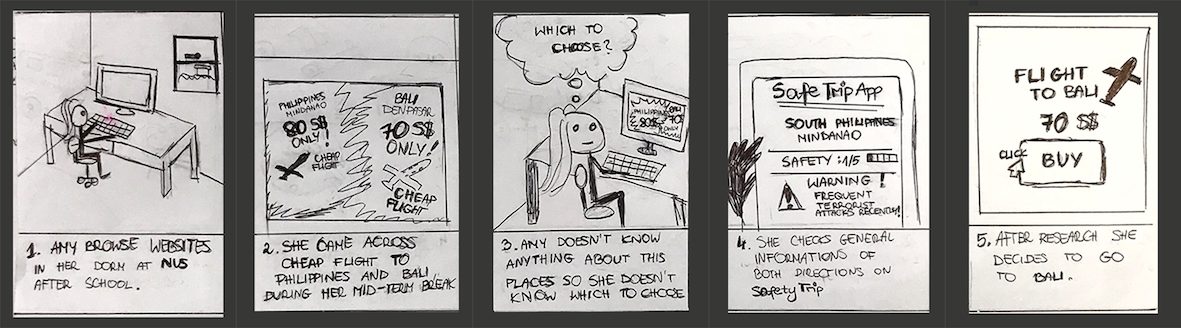 1. AMY BROWSE WEBSITES
IN HER DORM AT NUS
AFTER SCHOOL.
PHILIPPINES
MINDANAO
80 S$
ONLY!
CHEAP
FLIGHT
BALI
DENPASAR
70 S$
ONLY!
CHEAP
FLIGHT
2. SHE CAME ACROSS
CHEAP FLIGHT TO
PHILIPPINES AND BALI
DURING HER MID-TERM BREAK
WHICH TO
CHOOSE?
PHILIPPINES
MINDANAO
80S$
ONLY
BALI
70
3. AMY DOESN'T KNOW
ANYTHING ABOUT THIS
PLACES SO SHE DOESN'T
KNOW WHICH TO CHOOSE
Safe Trip App
SOUTH PHILIPPINES
MINDANAO
SAFETY : 1/5
WARNING!
FREQUENT
TERRORIST
ATTACKS RECENTLY!
4. SHE CHECKS GENERAL
INFORMATIONS OF
BOTH DIRECTIONS ON
SafetyTrip
FLIGHT
TO BALI
70 S$
CLICK
BUY
5. AFTER RESEARCH SHE
DECIDES TO GO
TO BALI.